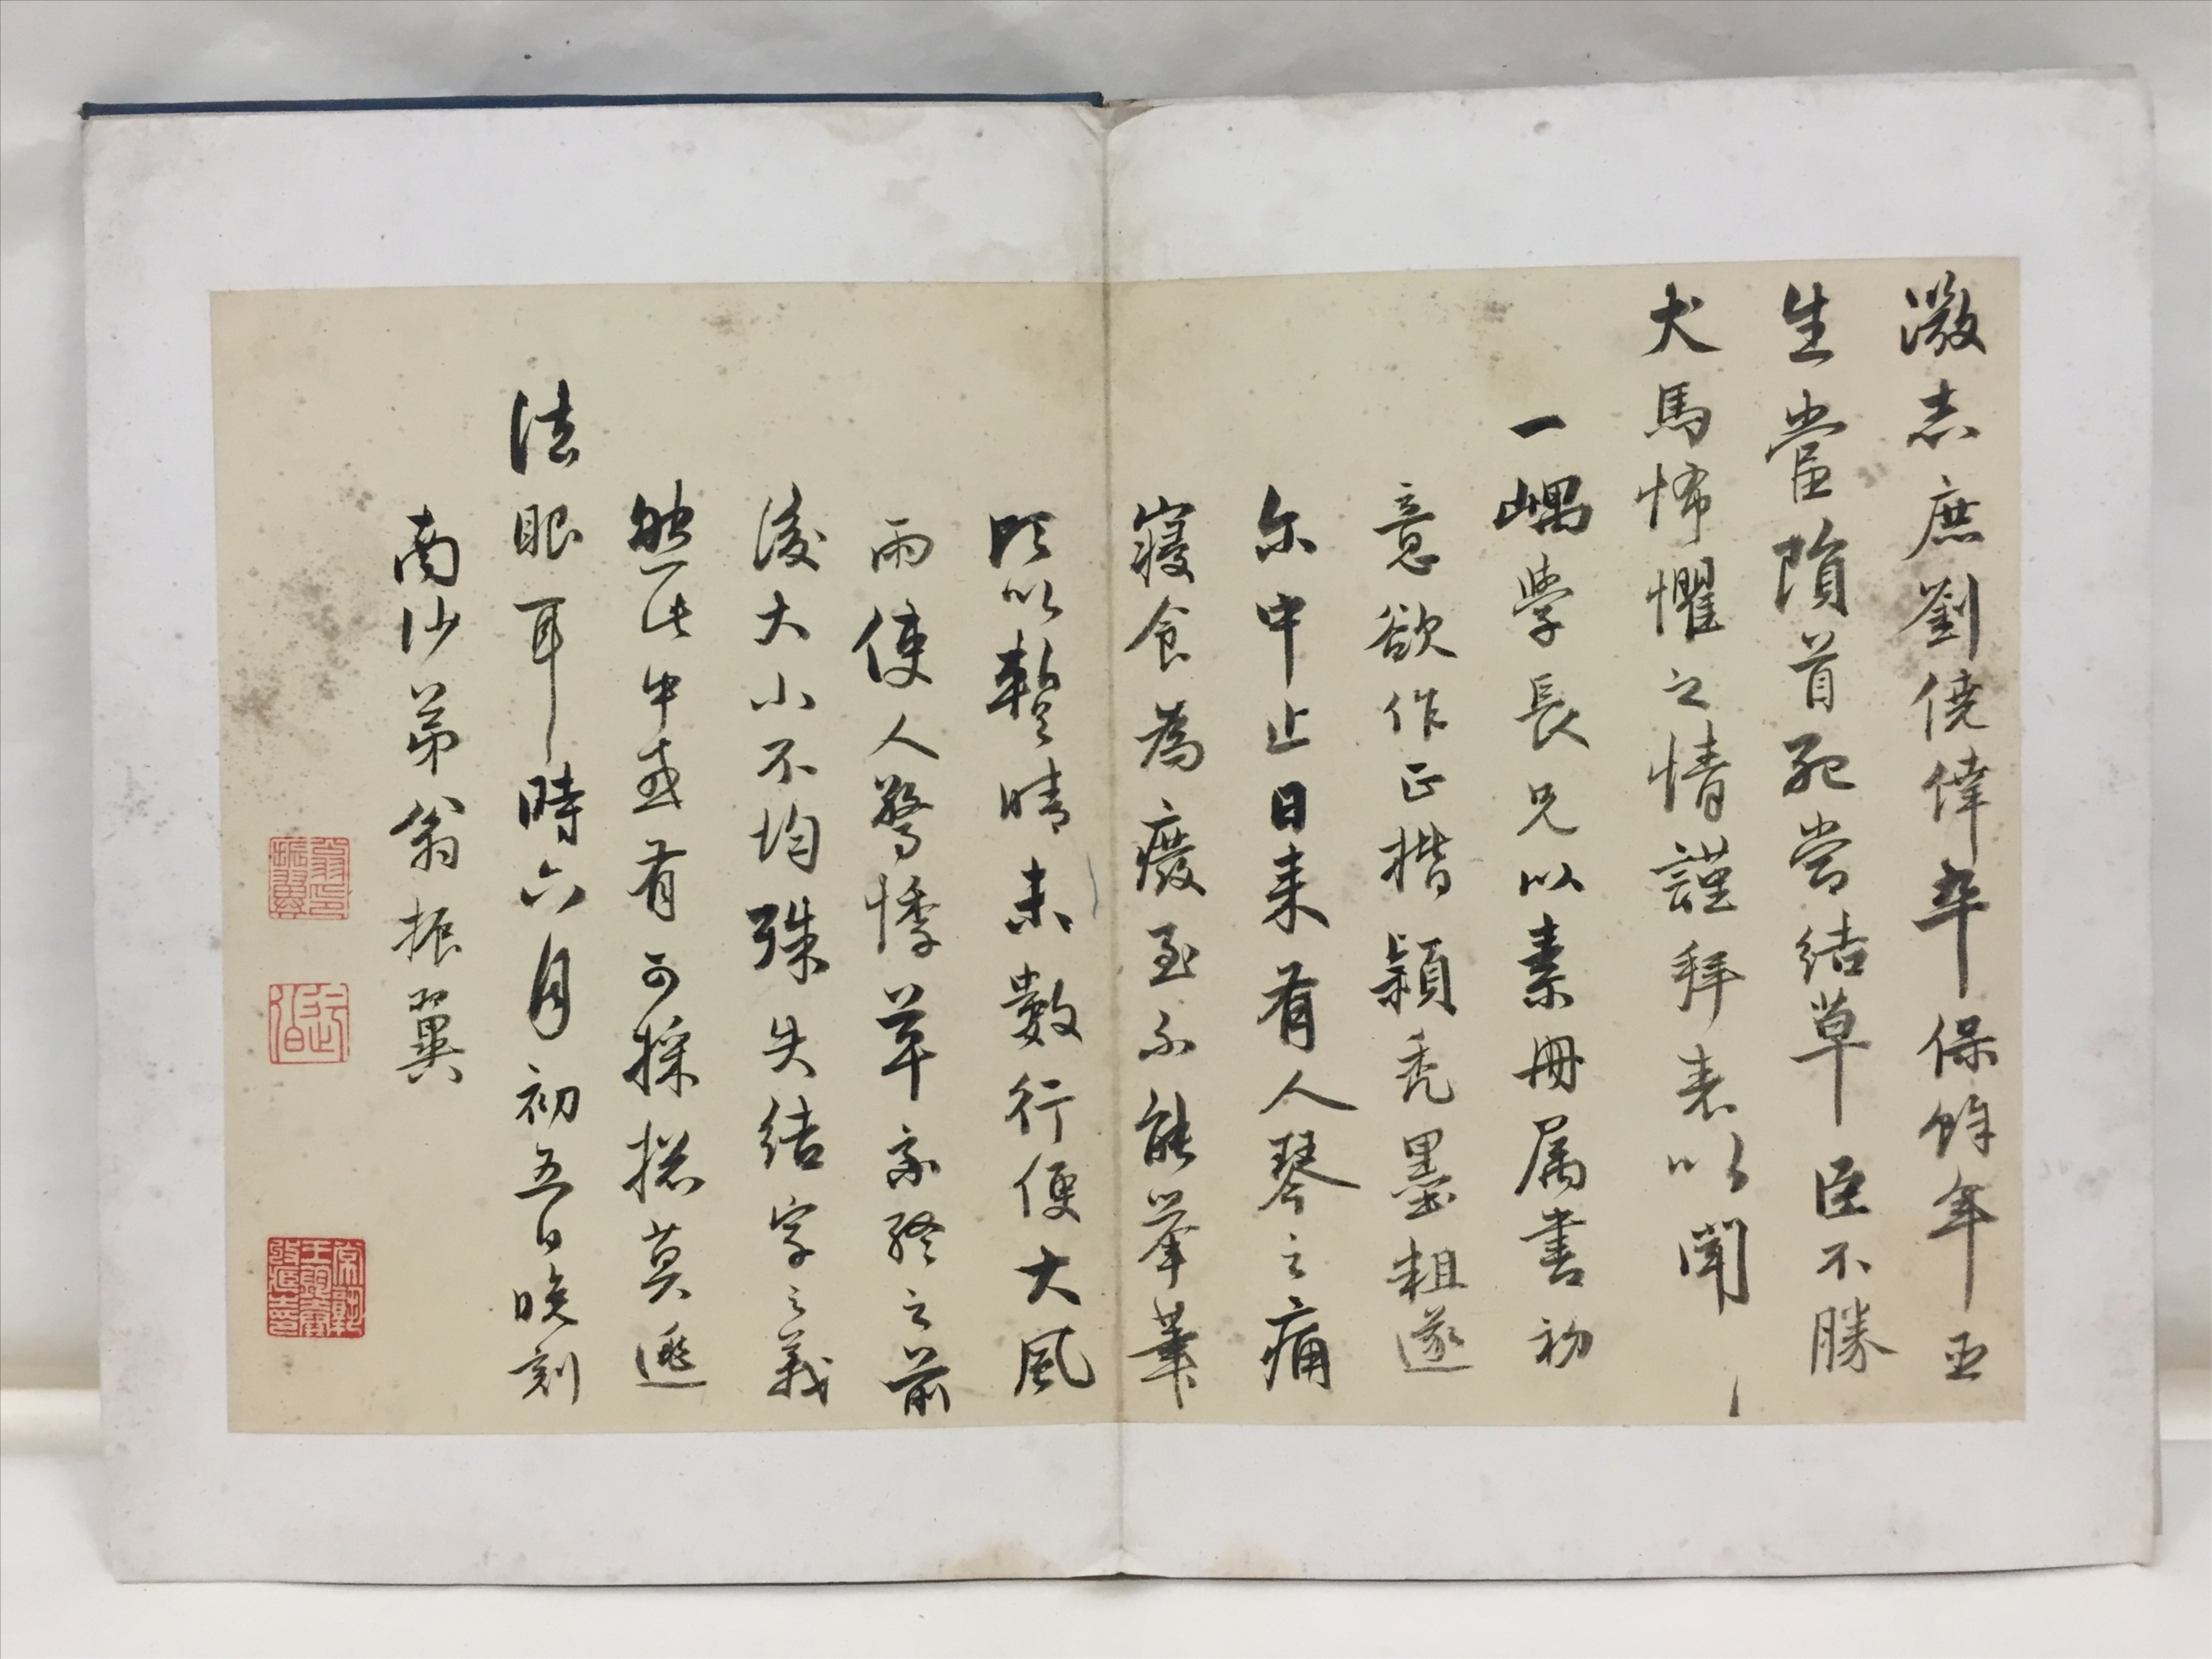 微志庶劉僥倖卒保餘年臣
生當隕首死當結草臣不勝
犬馬怖懼之情謹拜表以聞
一嵎學長兄以素冊属書初
意欲作正楷穎禿墨粗遂
尔中止日来有人琴之痛
寝食為廢至不能舉筆
昨以暫晴未數行便大風
雨使人驚悸草家蔡之前
後大小不均殊失結字之義
然此中或有可採摭莫逃
法眼耳時六月初五日晚刻
南沙弟翁振翼
翁振翼印